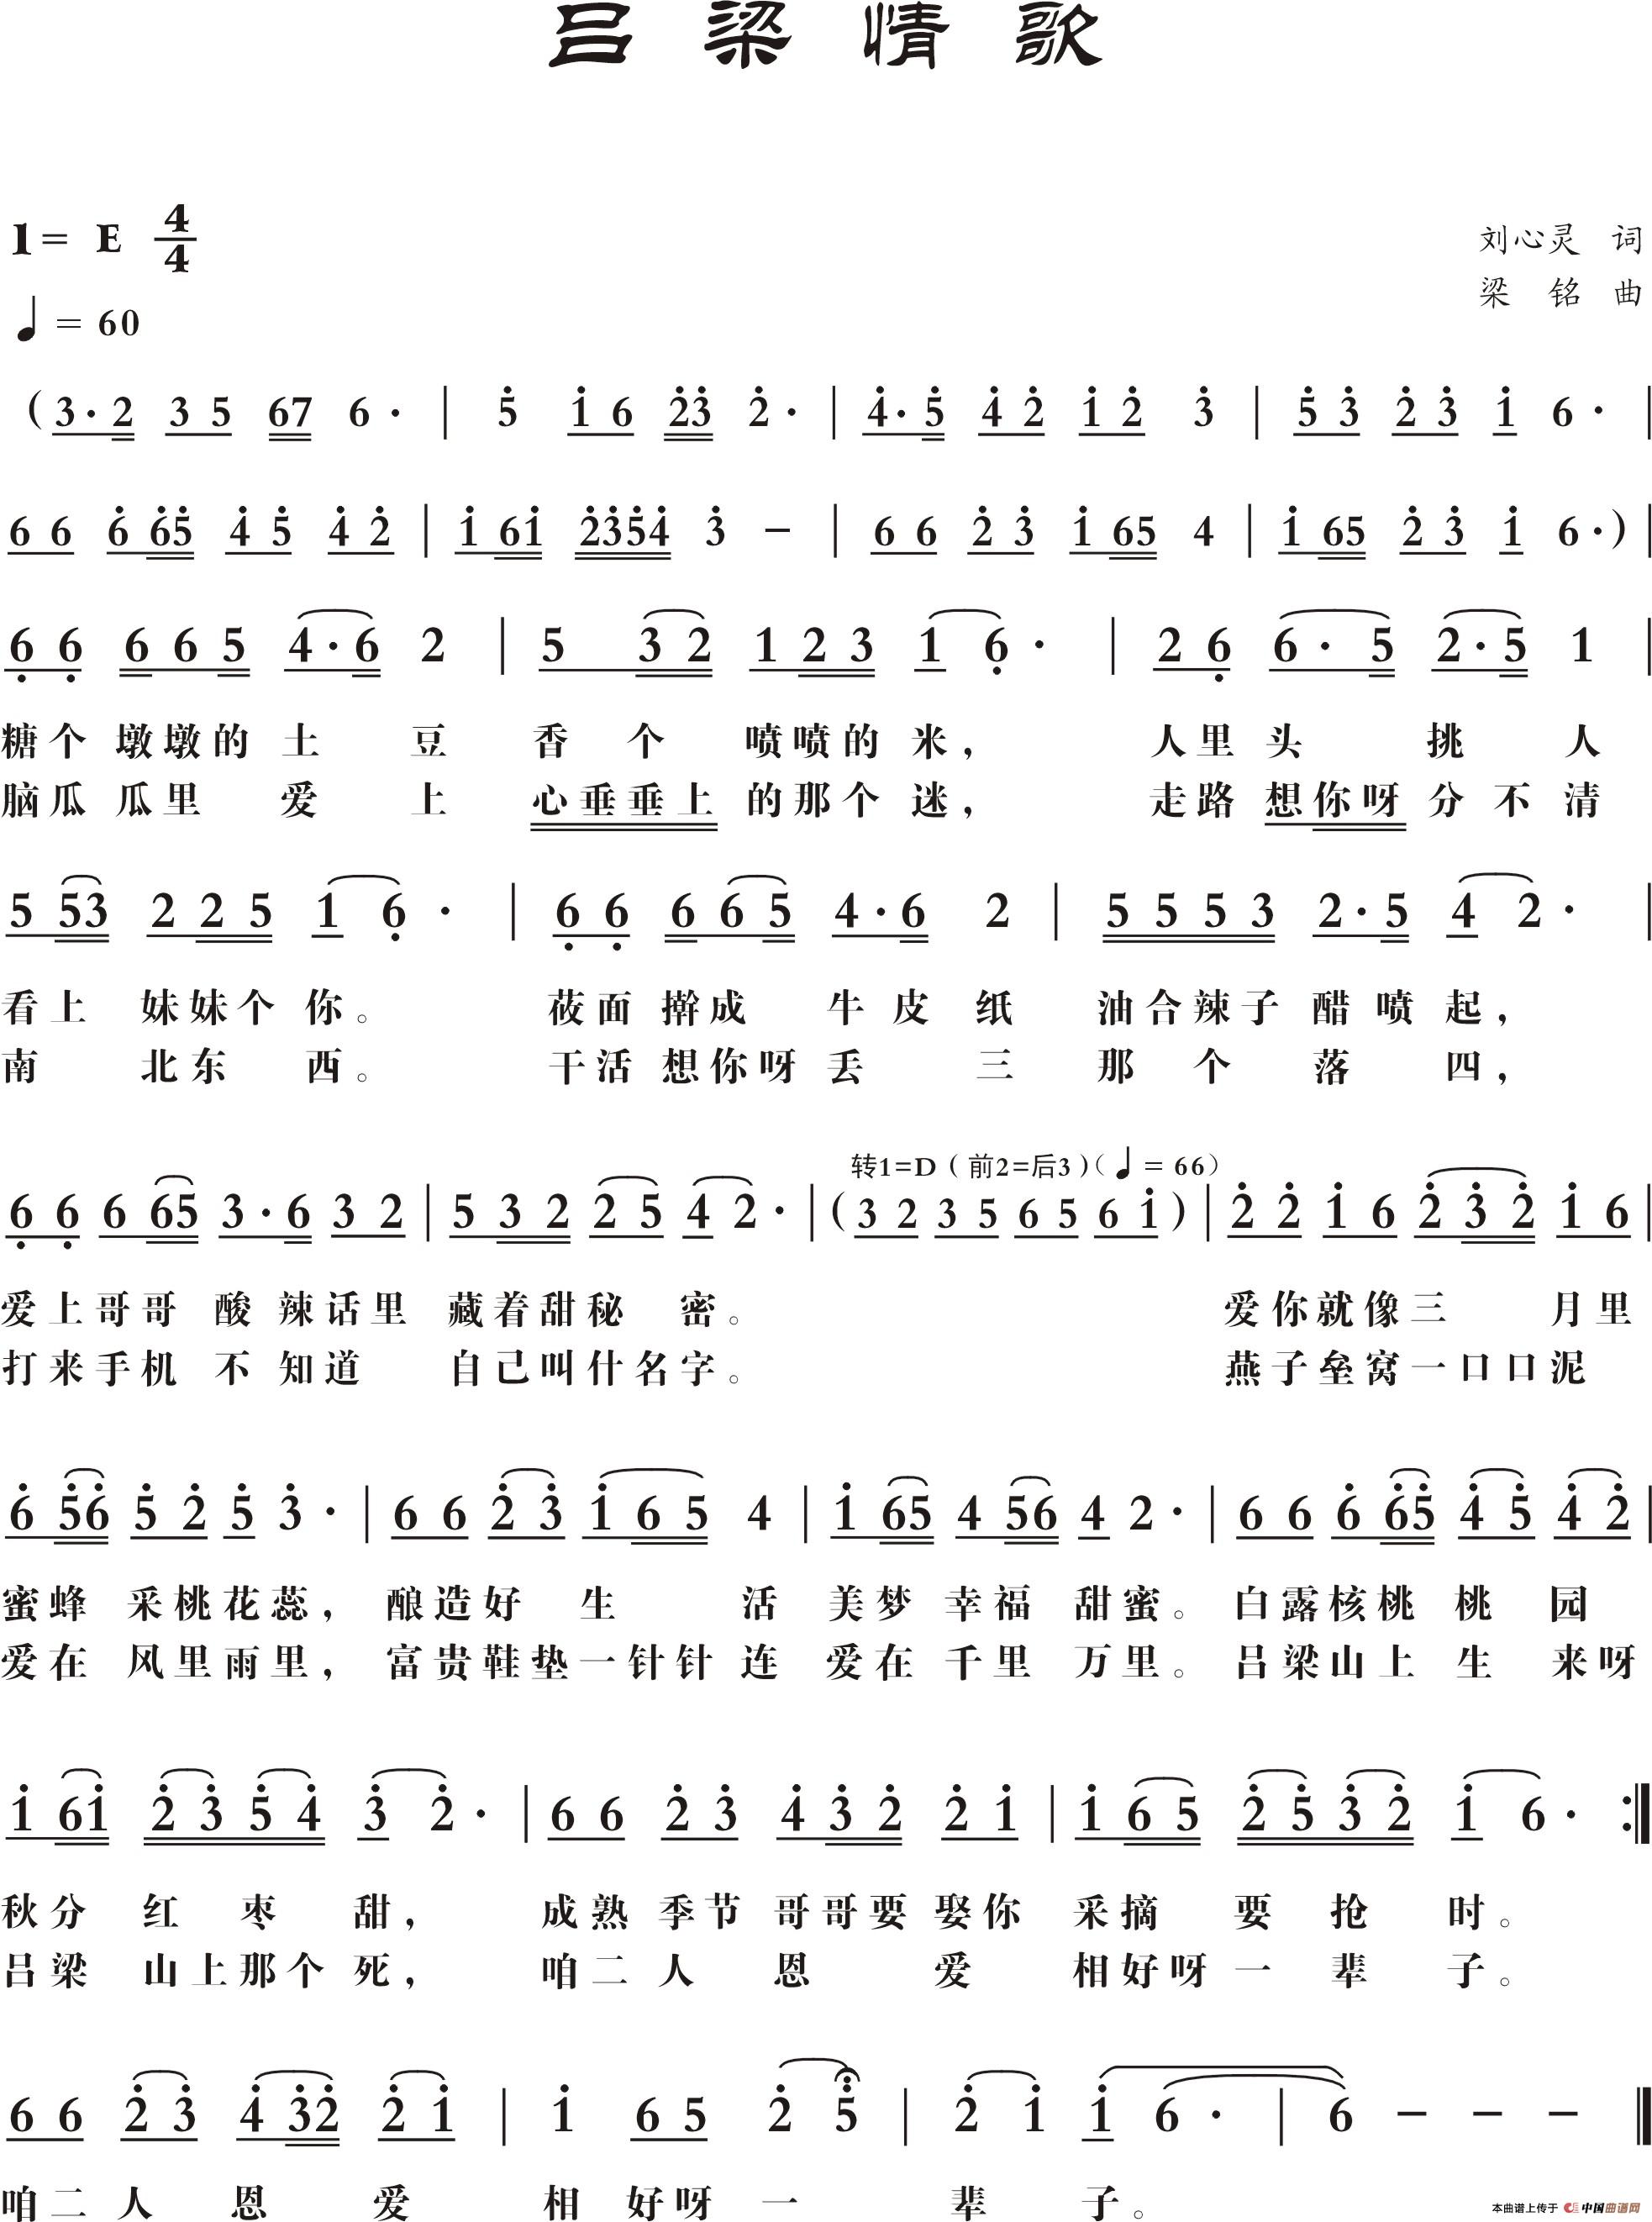 吕梁情歌
1= E 4/4
刘心灵 词
梁 铭 曲
♩= 60
( 3·2 3 5 67 6· | 5̇ 1̇ 6 2̇3̇ 2̇· | 4̇·5̇ 4̇ 2̇ 1̇ 2̇ 3̇ | 5̇ 3̇ 2̇ 3̇ 1̇ 6· |
6 6 6̇ 6̇5̇ 4̇ 5̇ 4̇ 2̇ | 1̇ 61̇ 2̇3̇5̇4̇ 3̇ − | 6 6 2̇ 3̇ 1̇ 65 4 | 1̇ 65 2̇ 3̇ 1̇ 6· ) |
6̣ 6̣ 6 6 5 4·6 2 | 5 3 2 1 2 3 1 6̣· | 2 6̣ 6· 5 2·5 1 |
糖个 墩墩的 土 豆 香 个 喷喷的 米， 人里 头 挑 人
脑瓜 瓜里 爱 上 心垂垂上 的那个 迷， 走路 想你呀 分 不 清
5 53 2 2 5 1 6̣· | 6̣ 6̣ 6 6 5 4·6 2 | 5 5 5 3 2·5 4 2· |
看上 妹妹个 你。 莜面 擀成 牛 皮 纸 油合辣子 醋 喷 起，
南 北东 西。 干活 想你呀 丢 三 那 个 落 四，
转1=D ( 前2=后3 )( ♩= 66 )
6̣ 6̣ 6 65 3·6 3 2 | 5 3 2 2 5 4 2· | ( 3 2 3 5 6 5 6 1̇ ) | 2̇ 2̇ 1̇ 6 2̇ 3̇ 2̇ 1̇ 6 |
爱上哥哥 酸 辣话里 藏着甜秘 密。 爱你就像三 月里
打来手机 不 知道 自己叫什名字。 燕子垒窝一口口泥
6̇ 5̇6̇ 5̇ 2̇ 5̇ 3̇· | 6 6 2̇ 3̇ 1̇ 6 5 4 | 1̇ 65 4 56 4 2· | 6 6 6̇ 6̇5̇ 4̇ 5̇ 4̇ 2̇ |
蜜蜂 采桃花蕊， 酿造好 生 活 美梦 幸福 甜蜜。 白露核桃 桃 园
爱在 风里雨里， 富贵鞋垫一针针 连 爱在 千里 万里。 吕梁山上 生 来呀
1̇ 61̇ 2̇ 3̇ 5̇ 4̇ 3̇ 2̇· | 6 6 2̇ 3̇ 4̇ 3̇ 2̇ 2̇ 1̇ | 1̇ 6 5 2̇ 5̇ 3̇ 2̇ 1̇ 6· :‖
秋分 红 枣 甜， 成熟 季节 哥哥要 娶你 采摘 要 抢 时。
吕梁 山上那个 死， 咱二 人 恩 爱 相好呀 一 辈 子。
6 6 2̇ 3̇ 4̇ 3̇2̇ 2̇ 1̇ | 1̇ 6 5 2̇ 5̇ | 2̇ 1̇ 1̇ 6· | 6 − − − ‖
咱二 人 恩 爱 相 好呀 一 辈 子。
本曲谱上传于 中国曲谱网